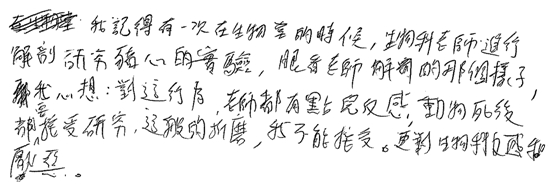 我記得有一次在生物堂的時候，生物科老師進行
解剖研究豬心的實驗，眼看老師解剖的那個樣子，
我心想：對這行為，老師都有點兒反感，動物死後
都要接受研究，這般的折磨，我不能接受。更對生物科反感和
厭惡。